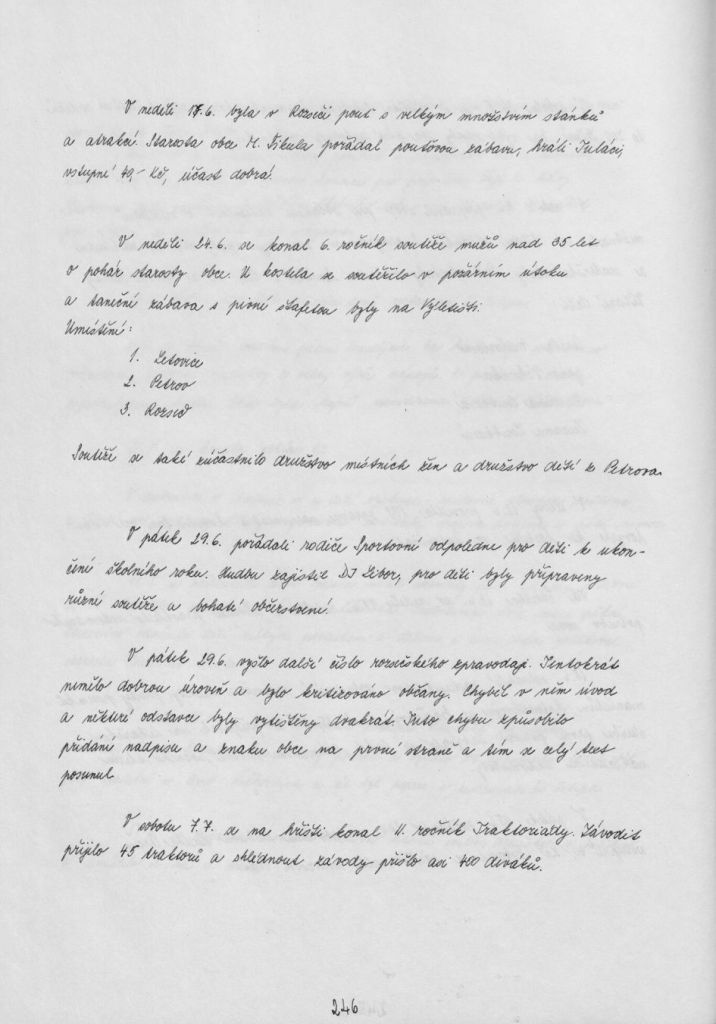 V neděli 17.6. byla v Rozseči pouť s velkým množstvím stánků
a atrakcí. Starosta obce M. Šikula pořádal pouťovou zábavu, hráli Tuláci,
vstupné 49,- Kč, účast dobrá.
V neděli 24.6. se konal 6. ročník soutěže mužů nad 35 let
o pohár starosty obce. U kostela se soutěžilo v požárním útoku
a taneční zábava s pivní štafetou byly na Výletišti.
Umístění:
1. Letovice
2. Petrov
3. Rozseč
Soutěže se také zúčastnilo družstvo místních žen a družstvo dětí z Petrova.
V pátek 29.6. pořádali rodiče Sportovní odpoledne pro děti k ukon-
čení školního roku. Hudbu zajistil DJ Libor, pro děti byly připraveny
různé soutěže a bohaté občerstvení.
V pátek 29.6. vyšlo další číslo rozsečského zpravodaje. Tentokrát
nemělo dobrou úroveň a bylo kritizováno občany. Chyběl v něm úvod
a některé odstavce byly vytištěny dvakrát. Tuto chybu způsobilo
přidání nadpisu a znaku obce na první straně a tím se celý text
posunul.
V sobotu 7.7. se na hřišti konal 11. ročník Traktoriády. Závodit
přijelo 45 traktorů a shlédnout závody přišlo asi 400 diváků.
246